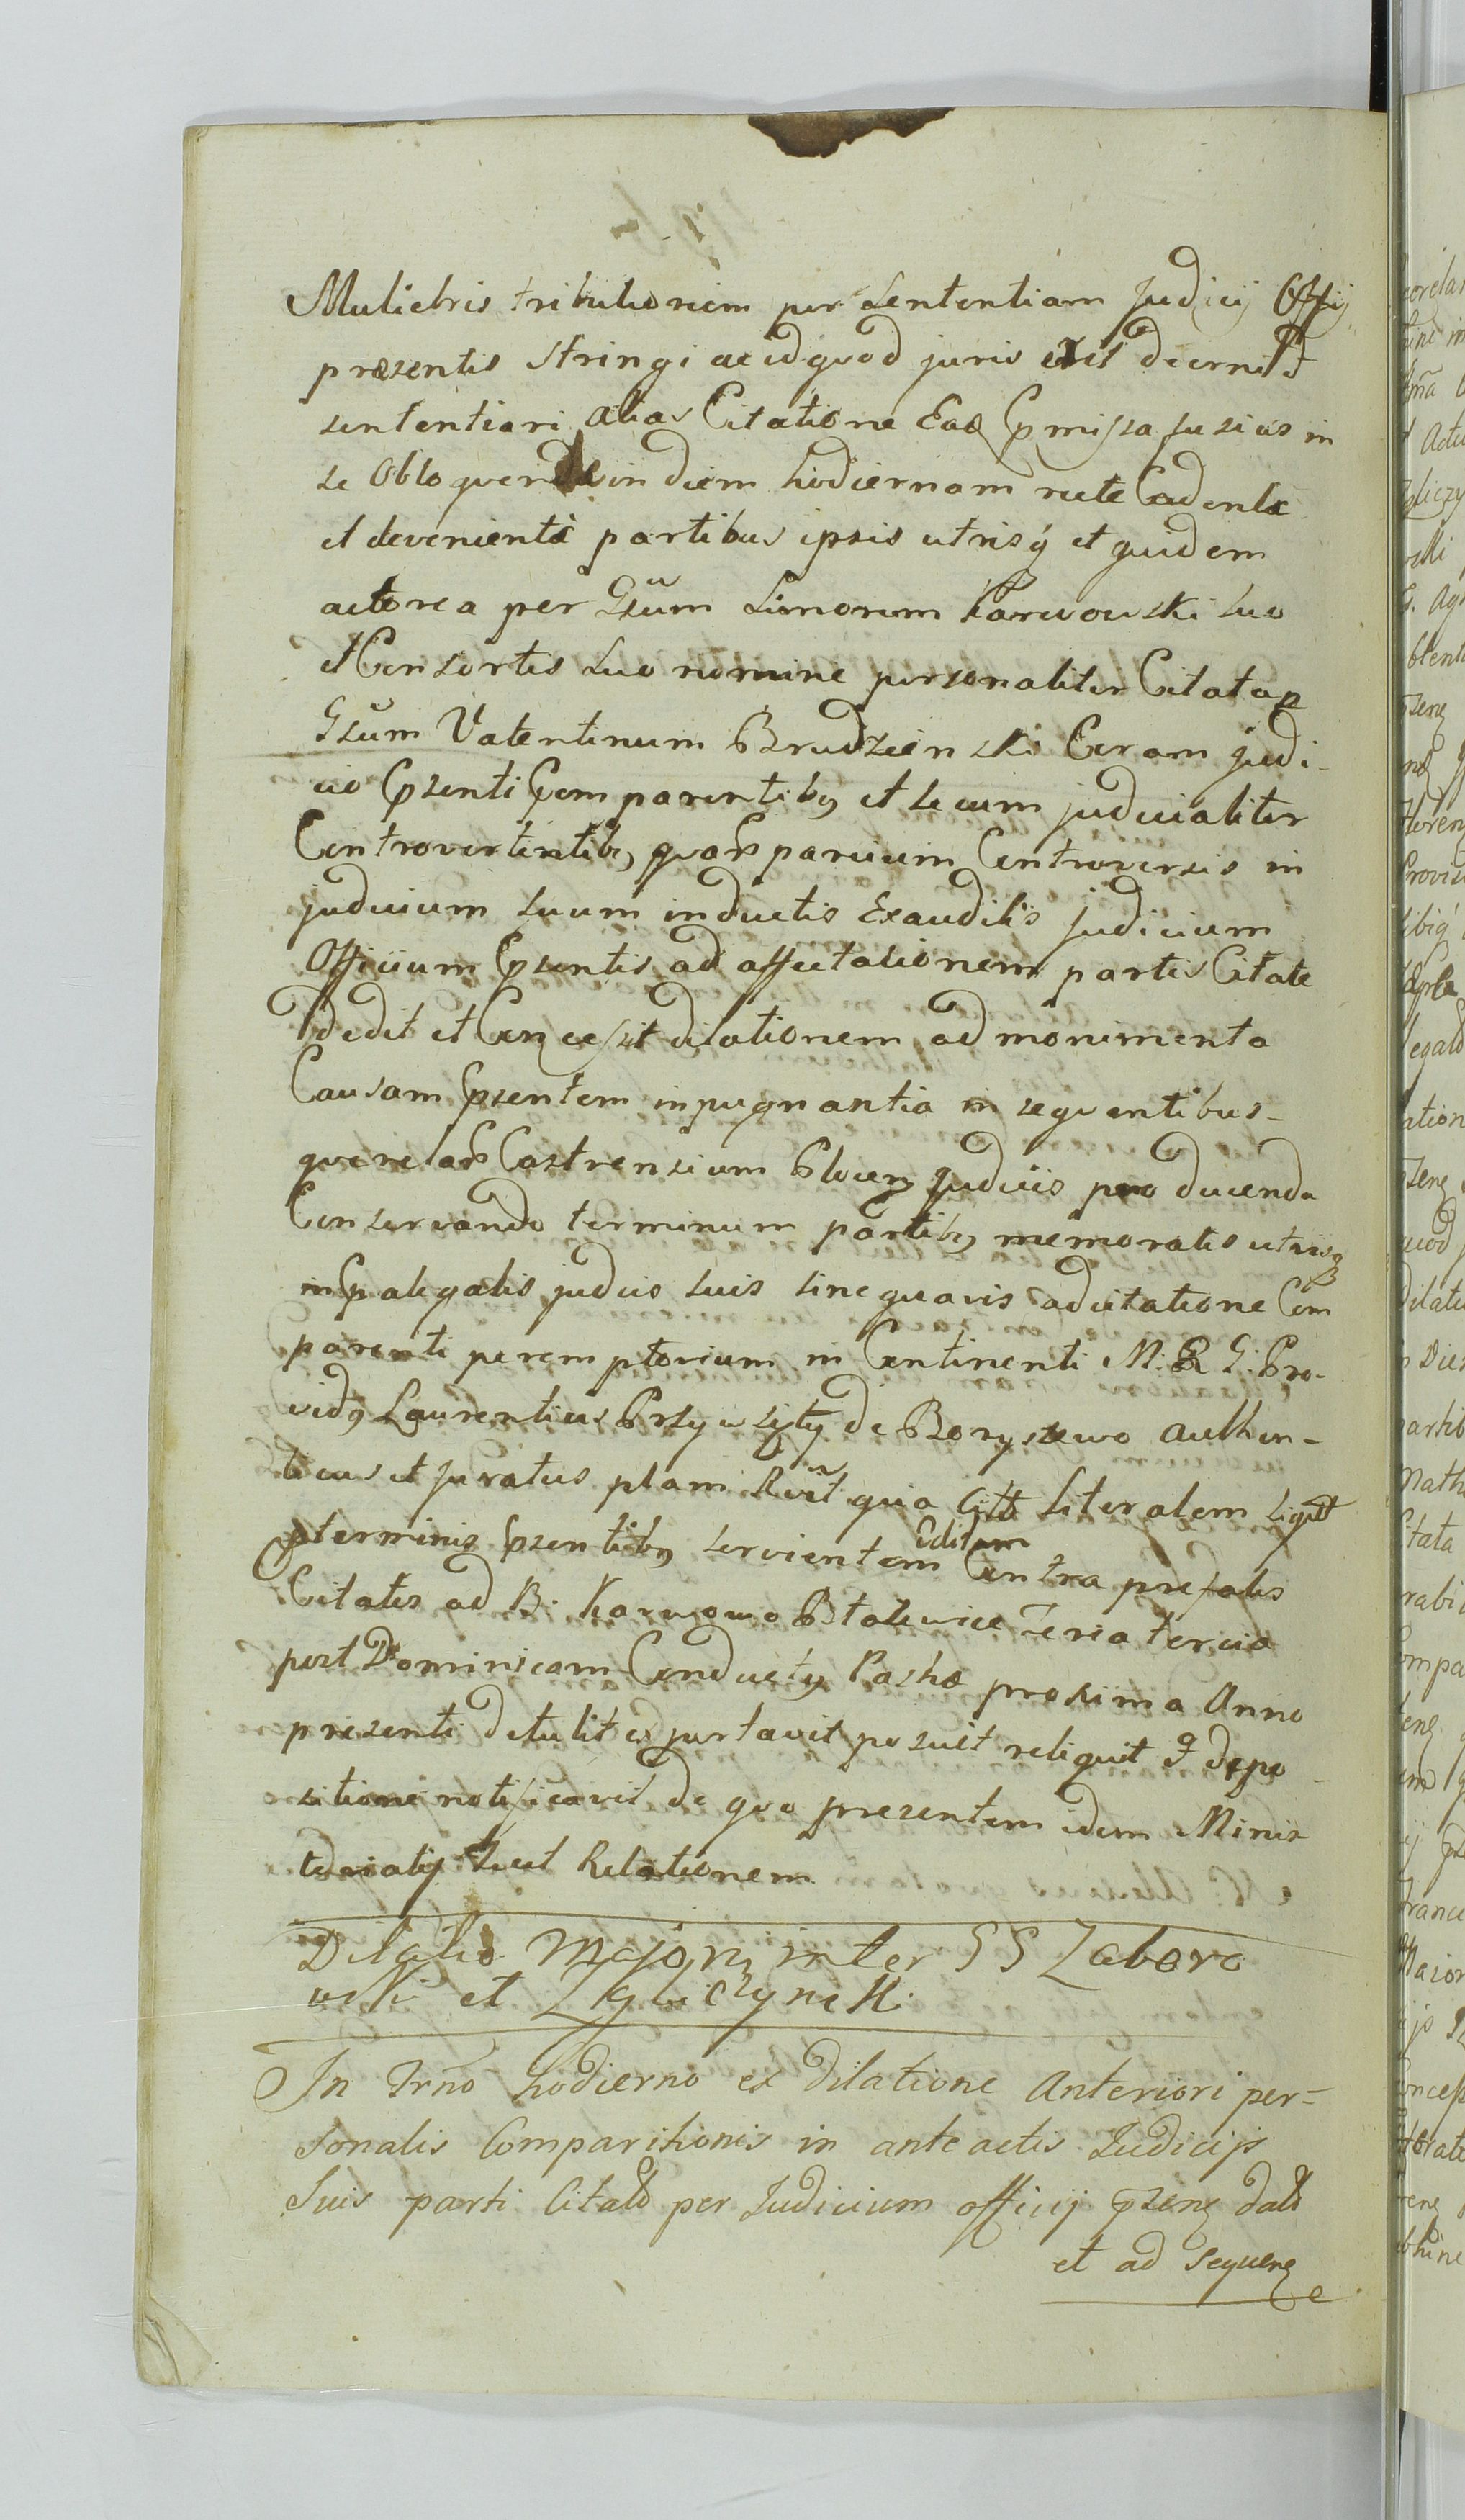 Muliebris tributionem per Sententiam Judicij Offij
præsentis stringi ac id quod juris erit decerni et
sententiari alias Citatione Eadē Præmissa fusius in
se obloquen de in diem hodiernam rite Cadente
et devenienti partibus ipsis utrisq et quidem
actorea per Gsum Simonem Karwowski suo
et Consortis suo nomine personaliter Citata p
Gsum Valentinum Brudzienski Coram judi-
cio Psenti Comparentibg et secum judicialiter
Controvertentibg quarum parcium Controversis in
judicium suum inductis Exauditis judicium
Officium Psentis ad affectationem partis Citate
dedit et Concessit dilationem ad monimenta
Causam Psentem inpugnantia in sequentibus-
querelarum Castrensium Plocen judiciis pro ducenda
Conservando terminum partibg memoratis utrisq
in Palegatis judiciis suis sine quavis adcitatione Com
parenti peremptorium in Continenti M: R G: Pro-
vidg Laurentius de Boryszewo authen-
ticus et juratus plam Rvit quia Citt Literalem
pterminis Psentibg servientem Editam Contra prefatis
Citatis ad B: Karwowo feria tercia
post Dominicam Conductg Pascha proxima Anno
presenti detulit exportavit posuit reliquit q depo
sitione notificavit de quo presentem idem Minis
terialis fecit Relationem
Dilatio Majorn inter GG Zaboro
wski et Zgliczynski
In Trno hodierno ex dilatione Anteriori per=
sonalis Comparitionis in anteactis Iudicijs
Suis parti Citatæ per Judicium officij pzenς datæ
et ad sequenς